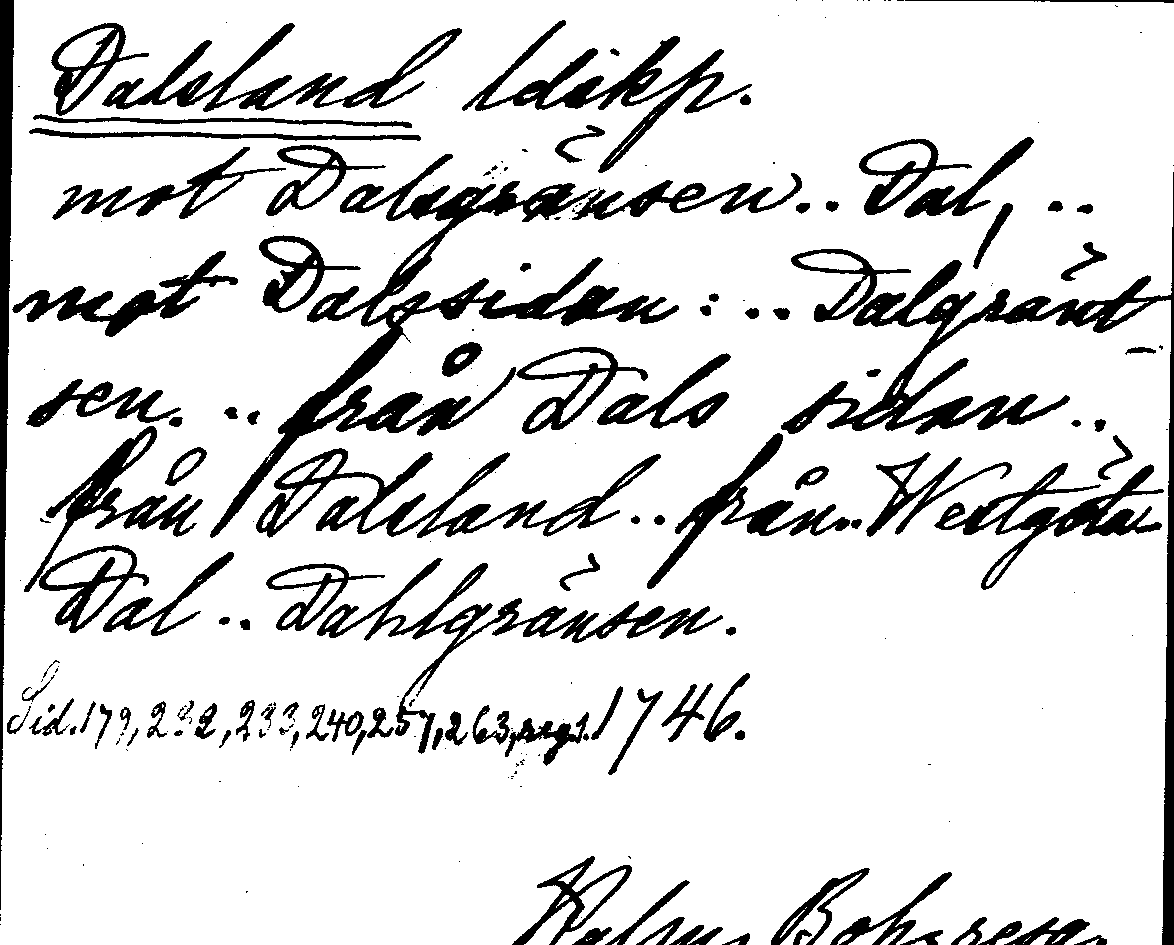 Dalsland ldskp.
mot Dalsgränsen .. Dal, ..
mot Dalssidan : .. Dalgränt
sen. .. från Dals sidan ..
från Dalsland .. från .. Westgöta
Dal .. Dahlgränsen.
Sid. 179, 232, 233, 240, 257, 263, regs. 1746.
Kalm, Bohusresa